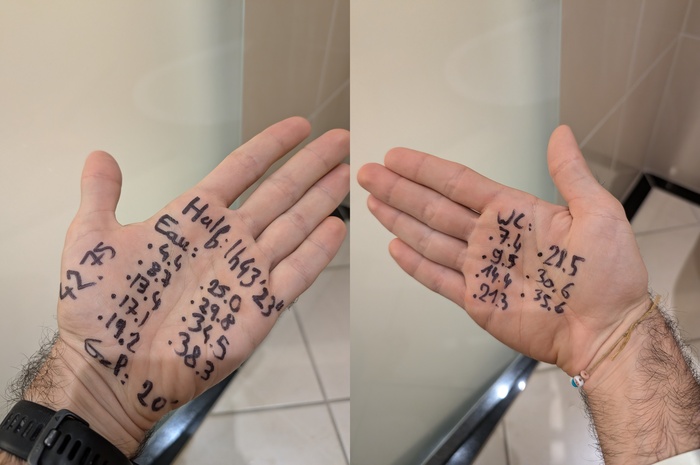 Half: 1h43'23"
Eau:
. 4.4
. 8.7
. 13.4
. 17.1
. 19.2
. 25.0
. 29.8
. 34.5
. 38.3
Gel: 20'
WC:
. 7.4
. 9.5
. 14.4
. 21.3
. 28.5
. 30.6
. 35.6